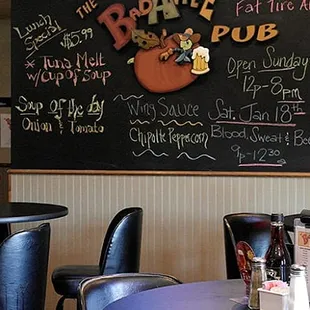 Lunch
Special $5.99
* Tuna Melt
w/Cup of Soup
Soup of the Day
Onion & Tomato
THE
BAD APPLE
PUB
Wing Sauce
Chipotle Peppercorn
Fat Tire A
Open Sunday
12-8pm
Sat. Jan 18th
Blood, Sweat & Be
9p-12:30